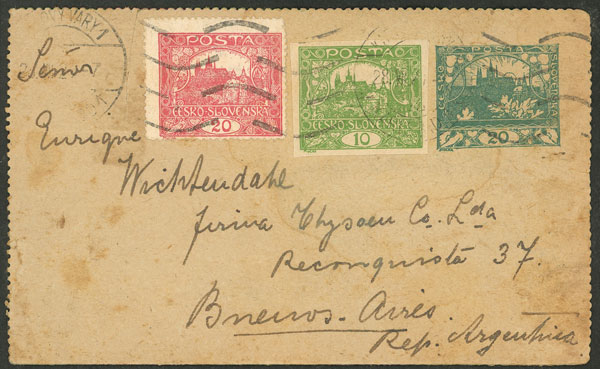 VARY 1
POSTA
ČESKO-SLOVENSKA
20
POSTA
ČESKO-SLOVENSKA
10
POSTA
ČESKO
SLOVENSKA
20
Señor
Enrique
Wichtendahl
firma Thyssen Co. Lda
Reconquista 37.
Buenos-Aires.
Rep. Argentina